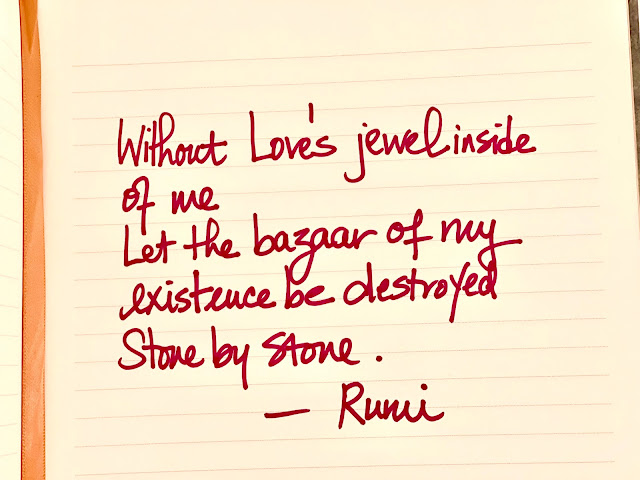 Without Love's jewel inside
of me
Let the bazaar of my
existence be destroyed
Stone by stone.
— Rumi